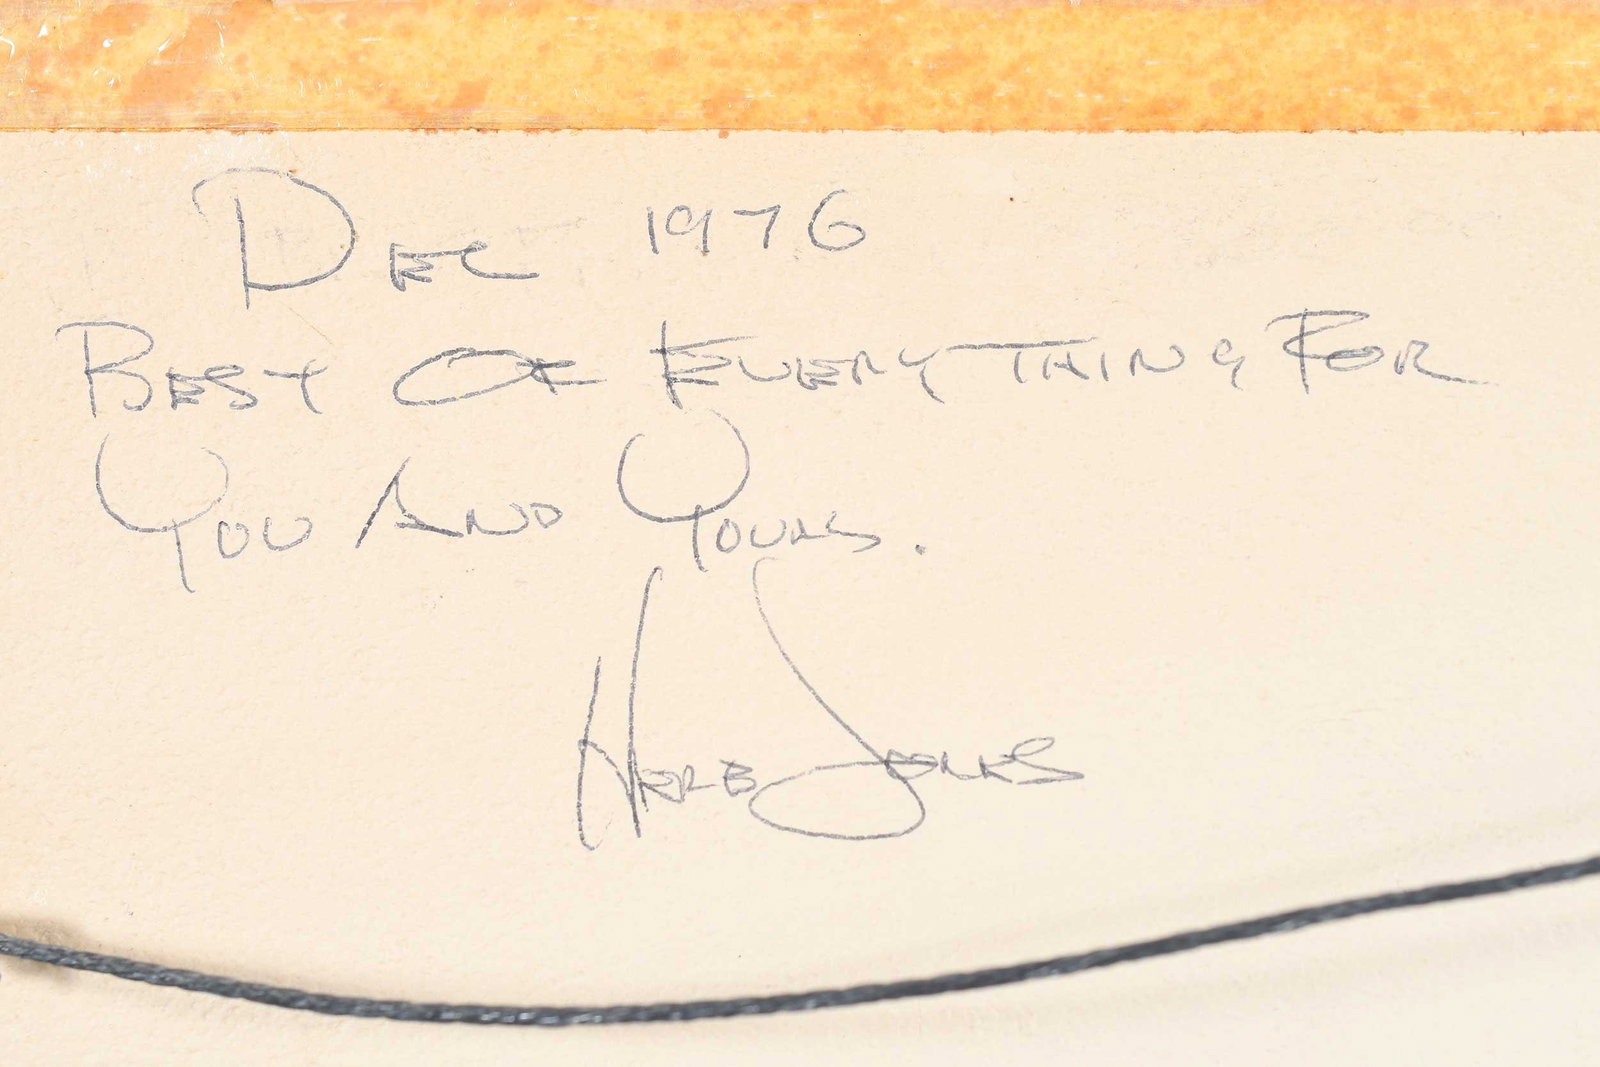 Dec 1976
Best Of Everything For
You And Yours.
Herb Jones